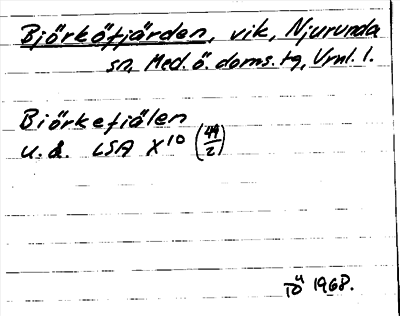 Björköfjärden, vik, Njurunda
sn, Med. ö. doms. tg, Vrnl. l.
Biörkefiälen
u.d. LSA X10 (49/2)
TÖ 1968.